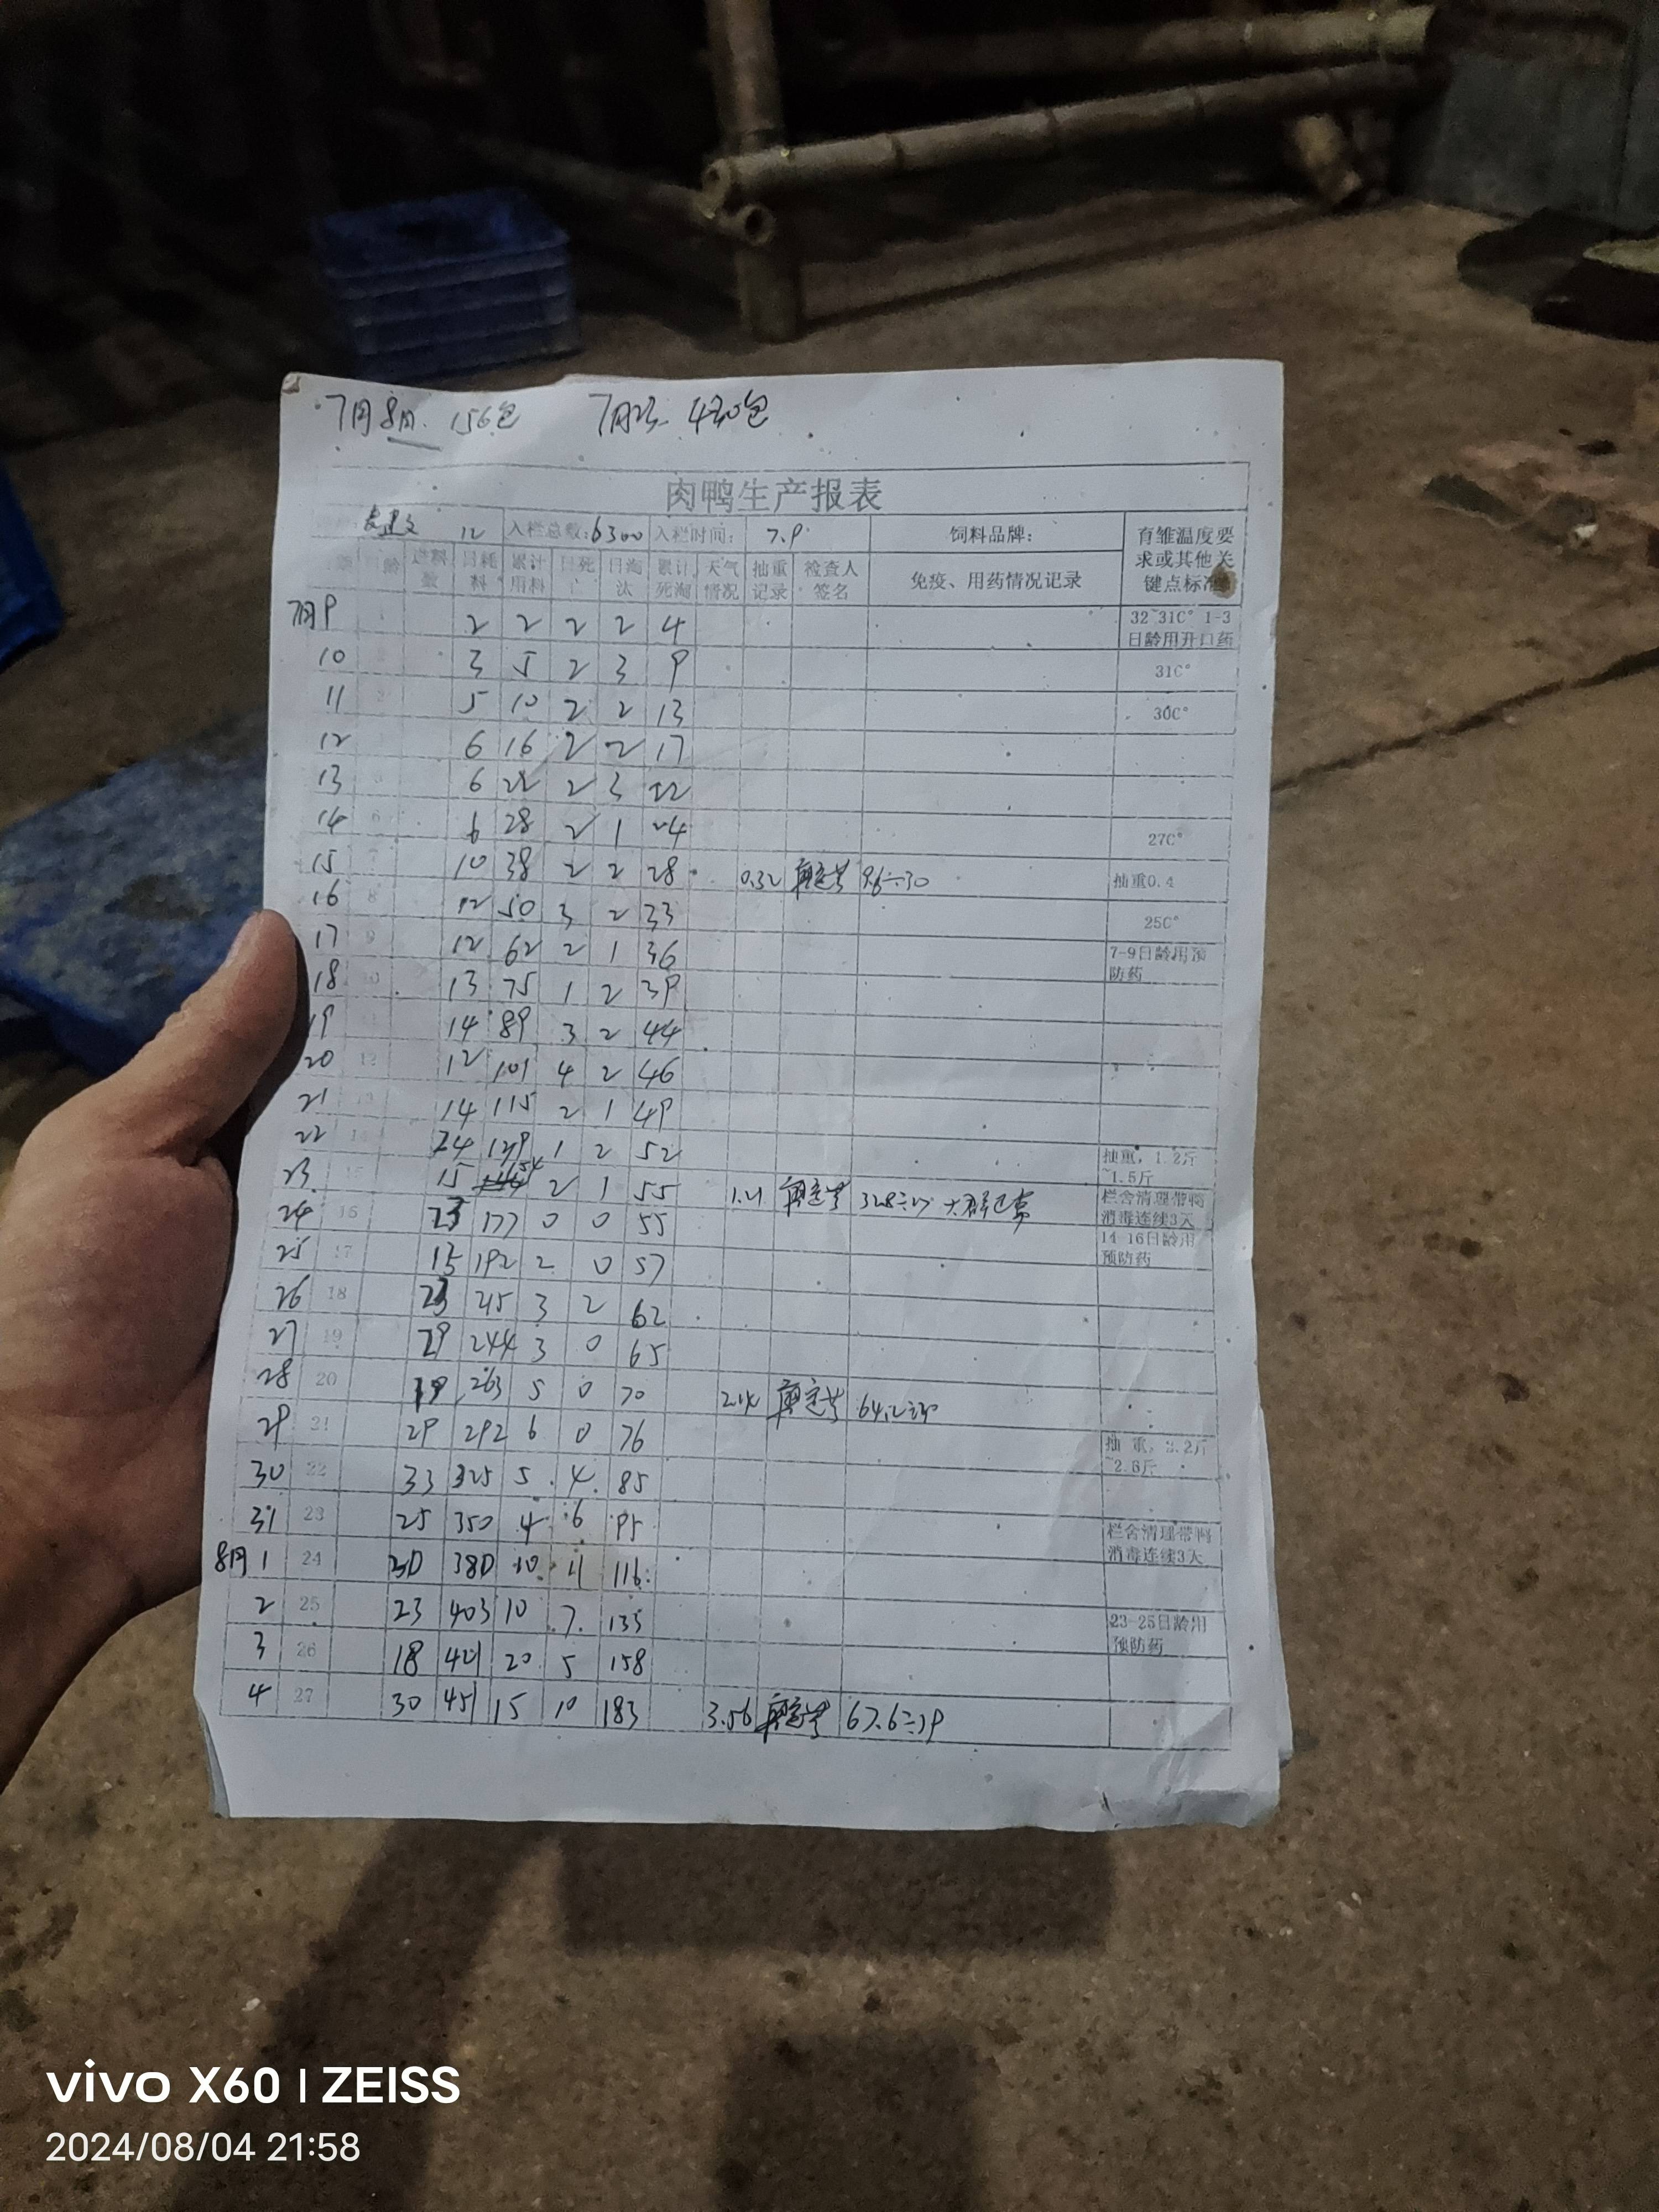 7月8日. 156包 7月23. 430包
肉鸭生产报表
12 入栏总数:6300 入栏时间: 7.9 饲料品牌: 育雏温度要求或其他关键点标准
日龄 进料数 日耗料 累计用料 日死亡 日淘汰 累计死淘 天气情况 抽重记录 检查人签名 免疫、用药情况记录
7月9 2 2 2 2 4 32~31C° 1-3日龄用开口药
10 3 5 2 3 9 31C°
11 5 10 2 2 13 30C°
12 6 16 2 2 17
13 6 22 2 3 22
14 6 6 28 2 1 24 27C°
15 7 10 38 2 2 28 0.32 9.6÷30 抽重0.4
16 8 12 50 3 2 33 25C°
17 9 12 62 2 1 36 7-9日龄用预防药
18 10 13 75 1 2 39
19 14 89 3 2 44
20 12 12 101 4 2 46
21 13 14 115 2 1 49
22 14 24 139 1 2 52 抽重，1.2斤~1.5斤
23 15 15 154 2 1 55 1.21 32.8÷27 大群正常 栏舍清理带鸭消毒连续3天
24 16 23 177 0 0 55 14-16日龄用预防药
25 17 15 192 2 0 57
26 18 23 215 3 2 62
27 19 29 244 3 0 65
28 20 19 263 5 0 70 2.14 64.2÷30
29 21 29 292 6 0 76 抽重，2.2斤~2.6斤
30 22 33 325 5 4 85
31 23 25 350 4 6 95 栏舍清理带鸭消毒连续3天
8月1 24 30 380 10 11 116
2 25 23 403 10 7 135 23-25日龄用预防药
3 26 18 421 20 5 158
4 27 30 451 15 10 183 3.56 67.6÷19
vivo X60 | ZEISS
2024/08/04 21:58